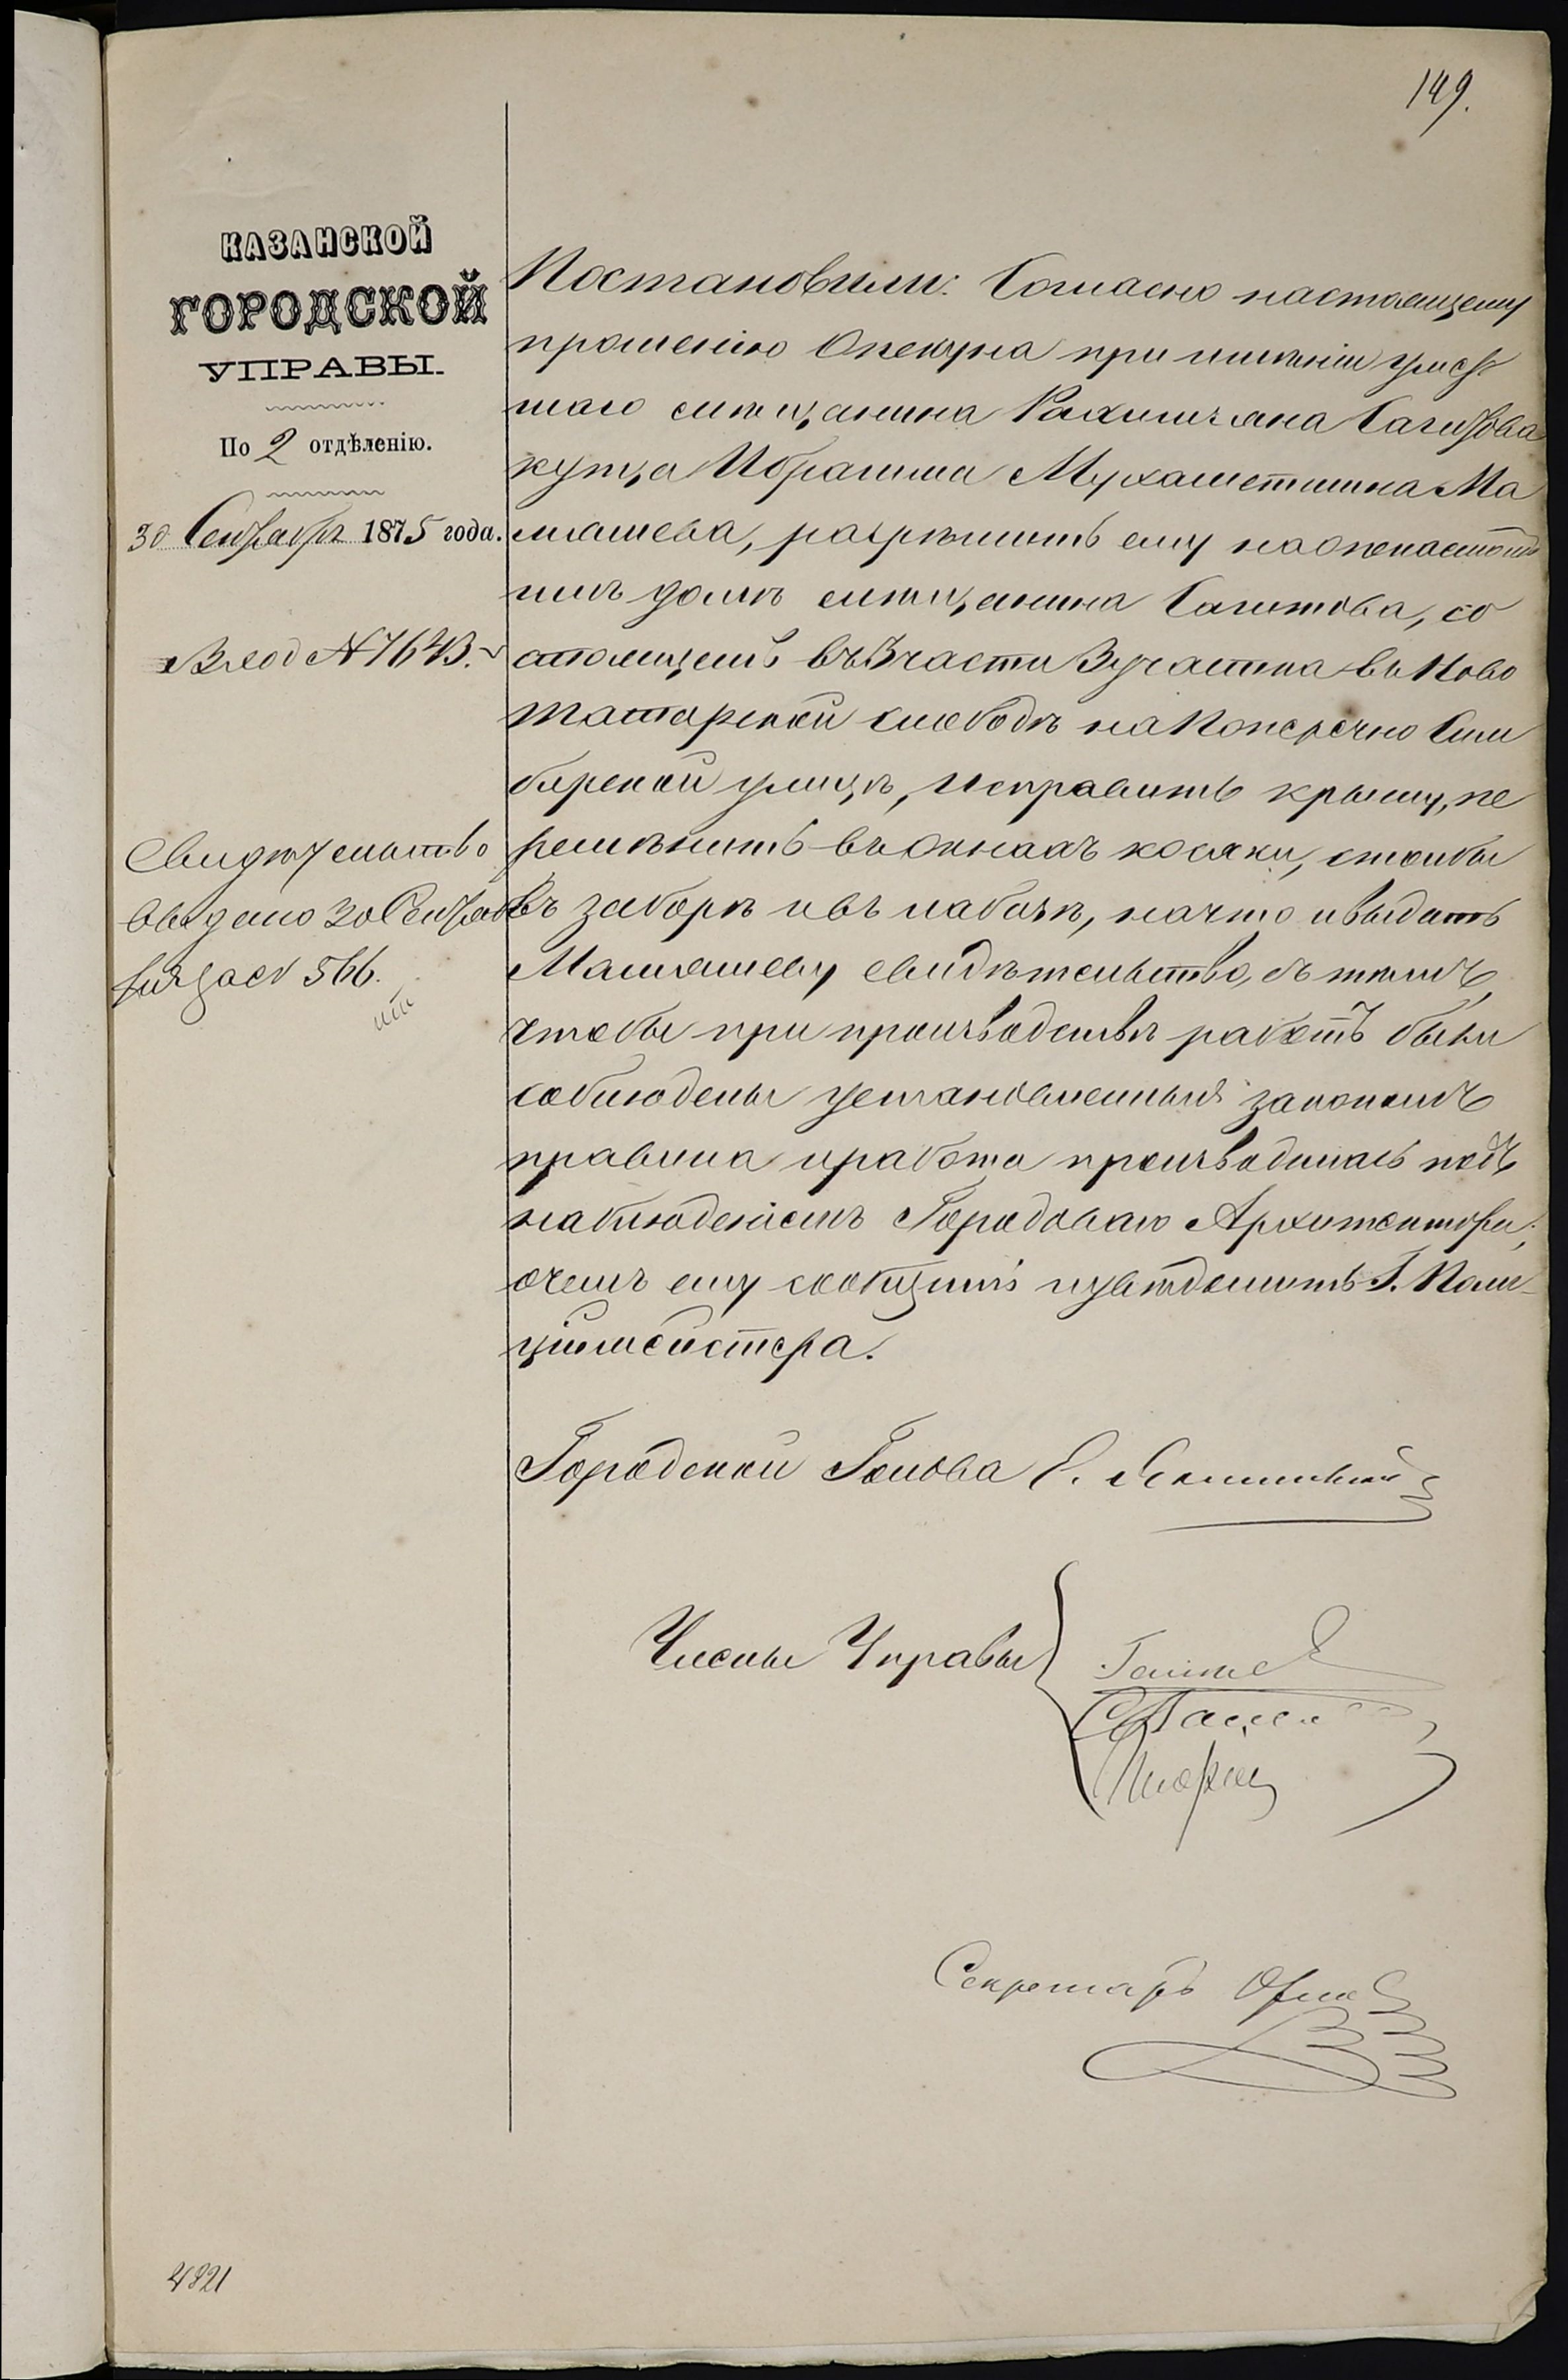 149.
КАЗАНСКОЙ
ГОРОДСКОЙ
УПРАВЫ.
По 2 отдѣленію.
30 Сентября 1875 года.
Вход № 7643.
Свидѣтельство
выдано 30 Сентяб
за № 566.
Постановили: Согласно настоящему
прошенію Опекуна при имѣніи умер
шаго мѣщанина Рахимчяна Сагитова
купца Ибрагима Мухаметшина Ма
мяшева, разрѣшить ему на опекаемом
имъ домѣ мѣщанина Сагитова, со
стоящемъ въ 3 части 3 участка въ Ново
Татарской слободѣ на Поперечно Сим
бирской улицѣ, исправить крышу, пе
ремѣнить въ окнахъ косяки, столбы
въ заборѣ и въ лабазѣ, на что и выдать
Мамяшеву свидѣтельство, съ тѣмъ,
чтобы при производствѣ работъ были
соблюдены установленныя закономъ
правила и работа производилась подъ
наблюденіемъ Городоваго Архитектора,
о чемъ ему сообщить и увѣдомить Г. Поли-
ціймейстера.
Городской Голова Е.
Члены Управы
Секретарь
4821